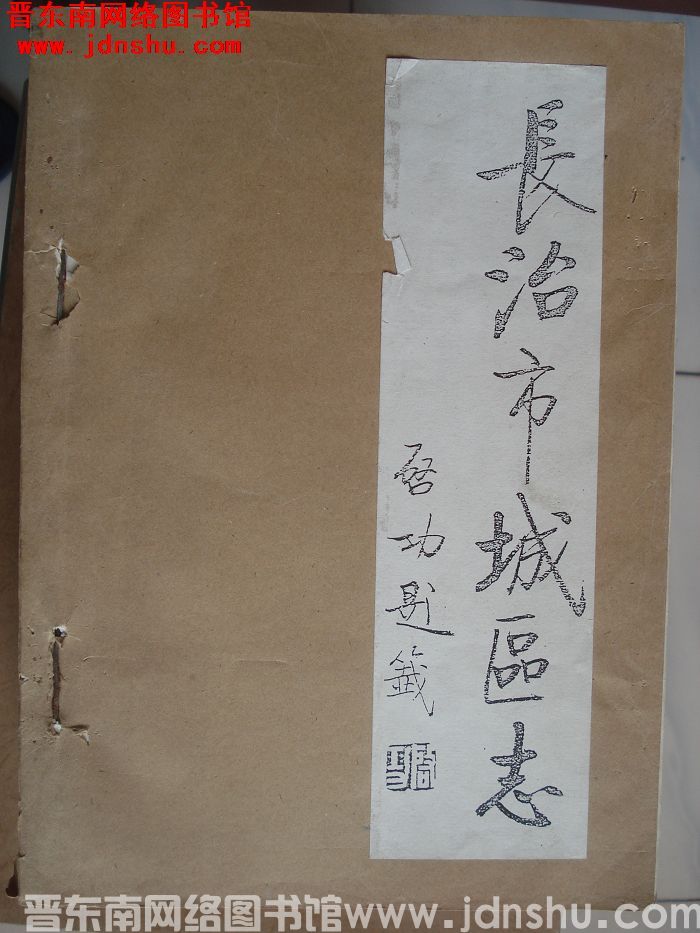 晋东南网络图书馆
www.jdnshu.com
長治市城區志
启功題籤
晋东南网络图书馆www.jdnshu.com